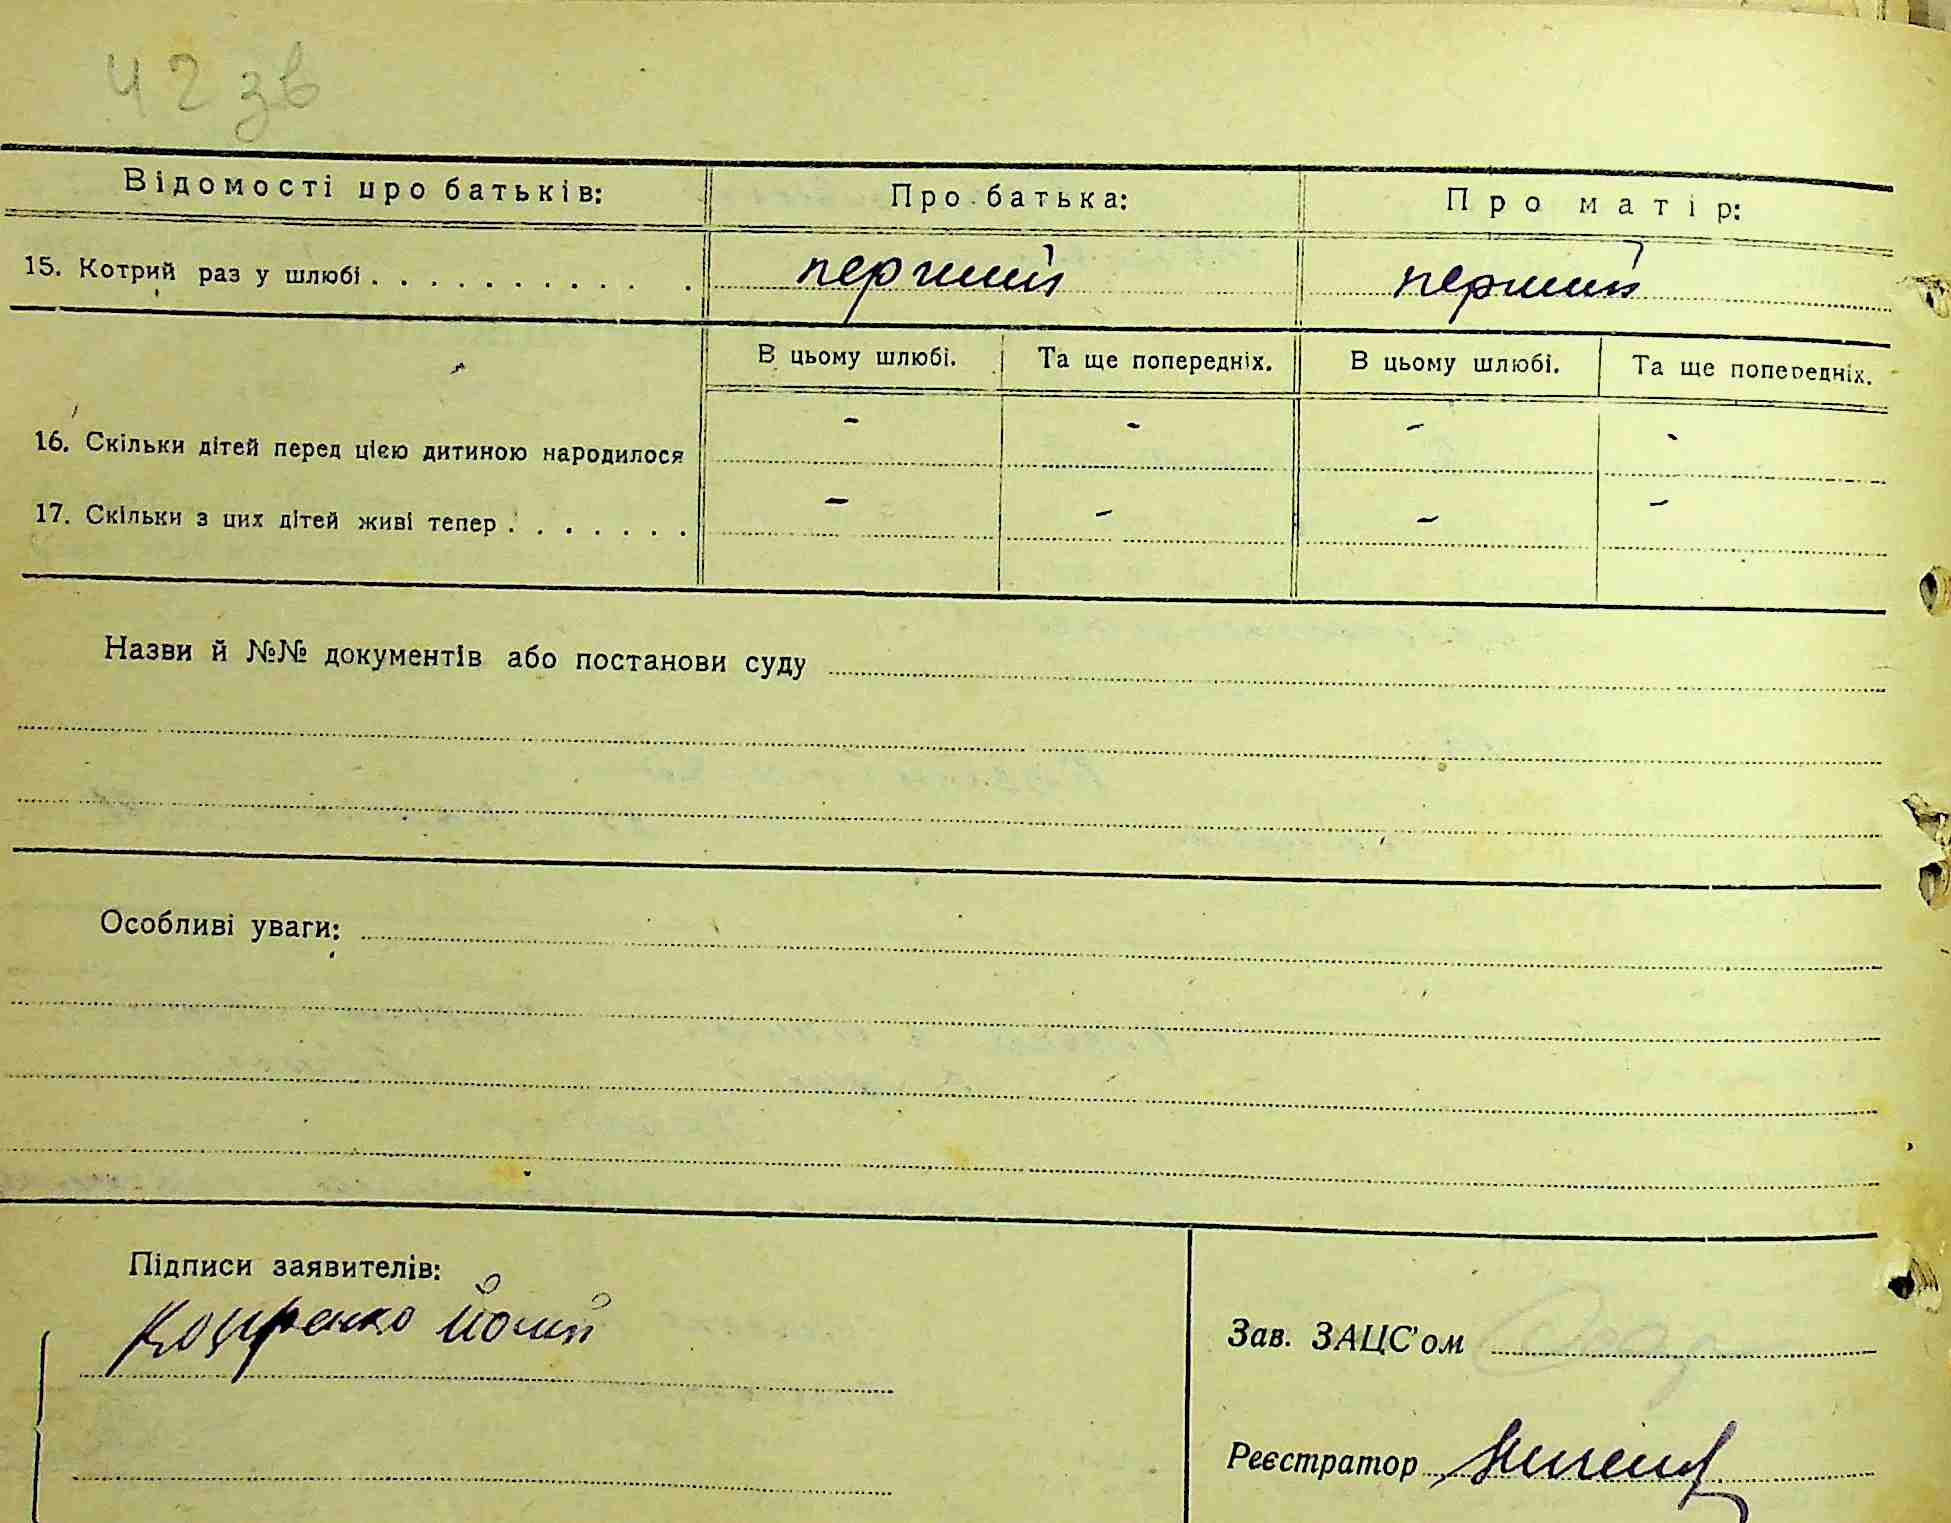 42 зв
Відомості про батьків: Про батька: Про матір:
15. Котрий раз у шлюбі . . . . . . . . . . . перший перший
В цьому шлюбі. Та ще попередніх. В цьому шлюбі. Та ще попередніх.
16. Скільки дітей перед цією дитиною народилося - - - -
17. Скільки з цих дітей живі тепер . . . . . . . - - - -
Назви й №№ документів або постанови суду
Особливі уваги:
Підписи заявителів:
Зав. ЗАЦС'ом
Реєстратор